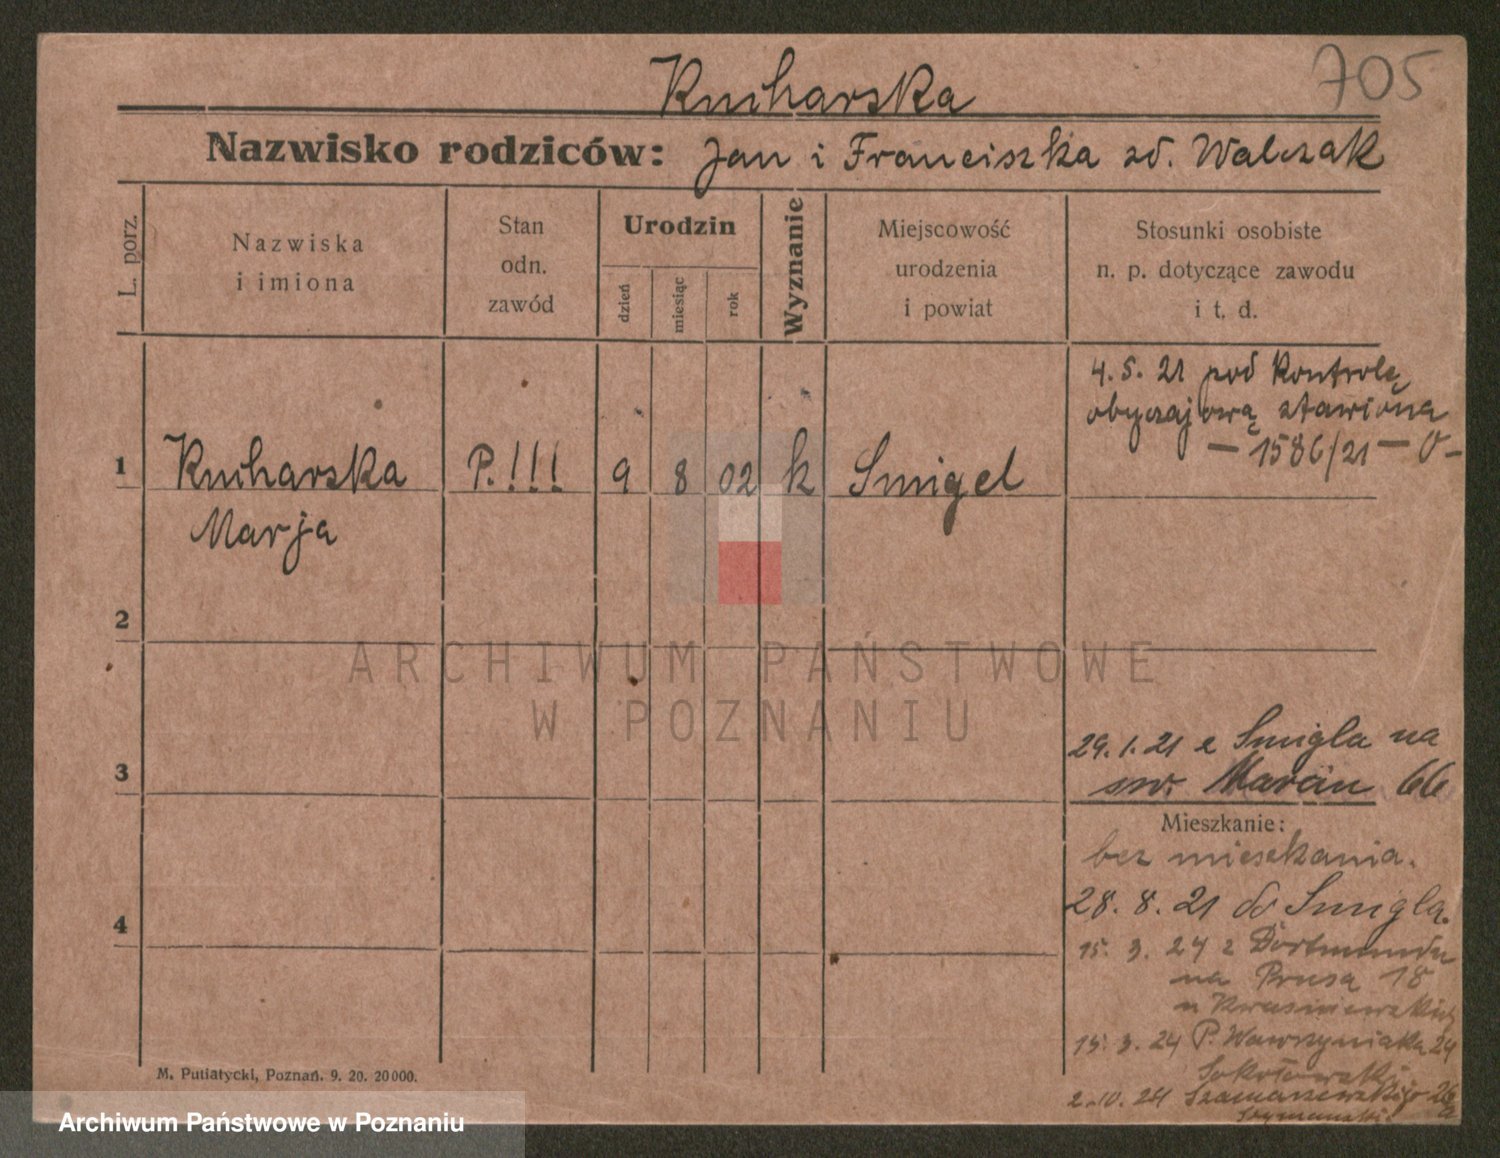 705
Kucharska
Nazwisko rodziców: Jan i Franciszka zd. Walczak
L. porz.
Nazwiska
i imiona
Stan
odn.
zawód
Urodzin
dzień
miesiąc
rok
Wyznanie
Miejscowość
urodzenia
i powiat
Stosunki osobiste
n. p. dotyczące zawodu
i t. d.
4. 5. 21 pod kontrolę
obyczajową stawiona
— 1586/21 —
1 Kucharska P.!!! 9 8 02 k Smigel
Marja
2
3
29. 1. 21 z Smigla na
św. Marcin 66
Mieszkanie:
bez mieszkania.
4
28. 8. 21 do Smigla.
15. 3. 24 z Dortmundu
na Prusa 18
u Kwaśniewskich
15. 3. 24 P. Wawrzyniaka 24
Sokołowski
2. 10. 24 Szamarzewskiego 26
Szymański
M. Putiatycki, Poznań. 9. 20. 20000.
ARCHIWUM PAŃSTWOWE
W POZNANIU
Archiwum Państwowe w Poznaniu